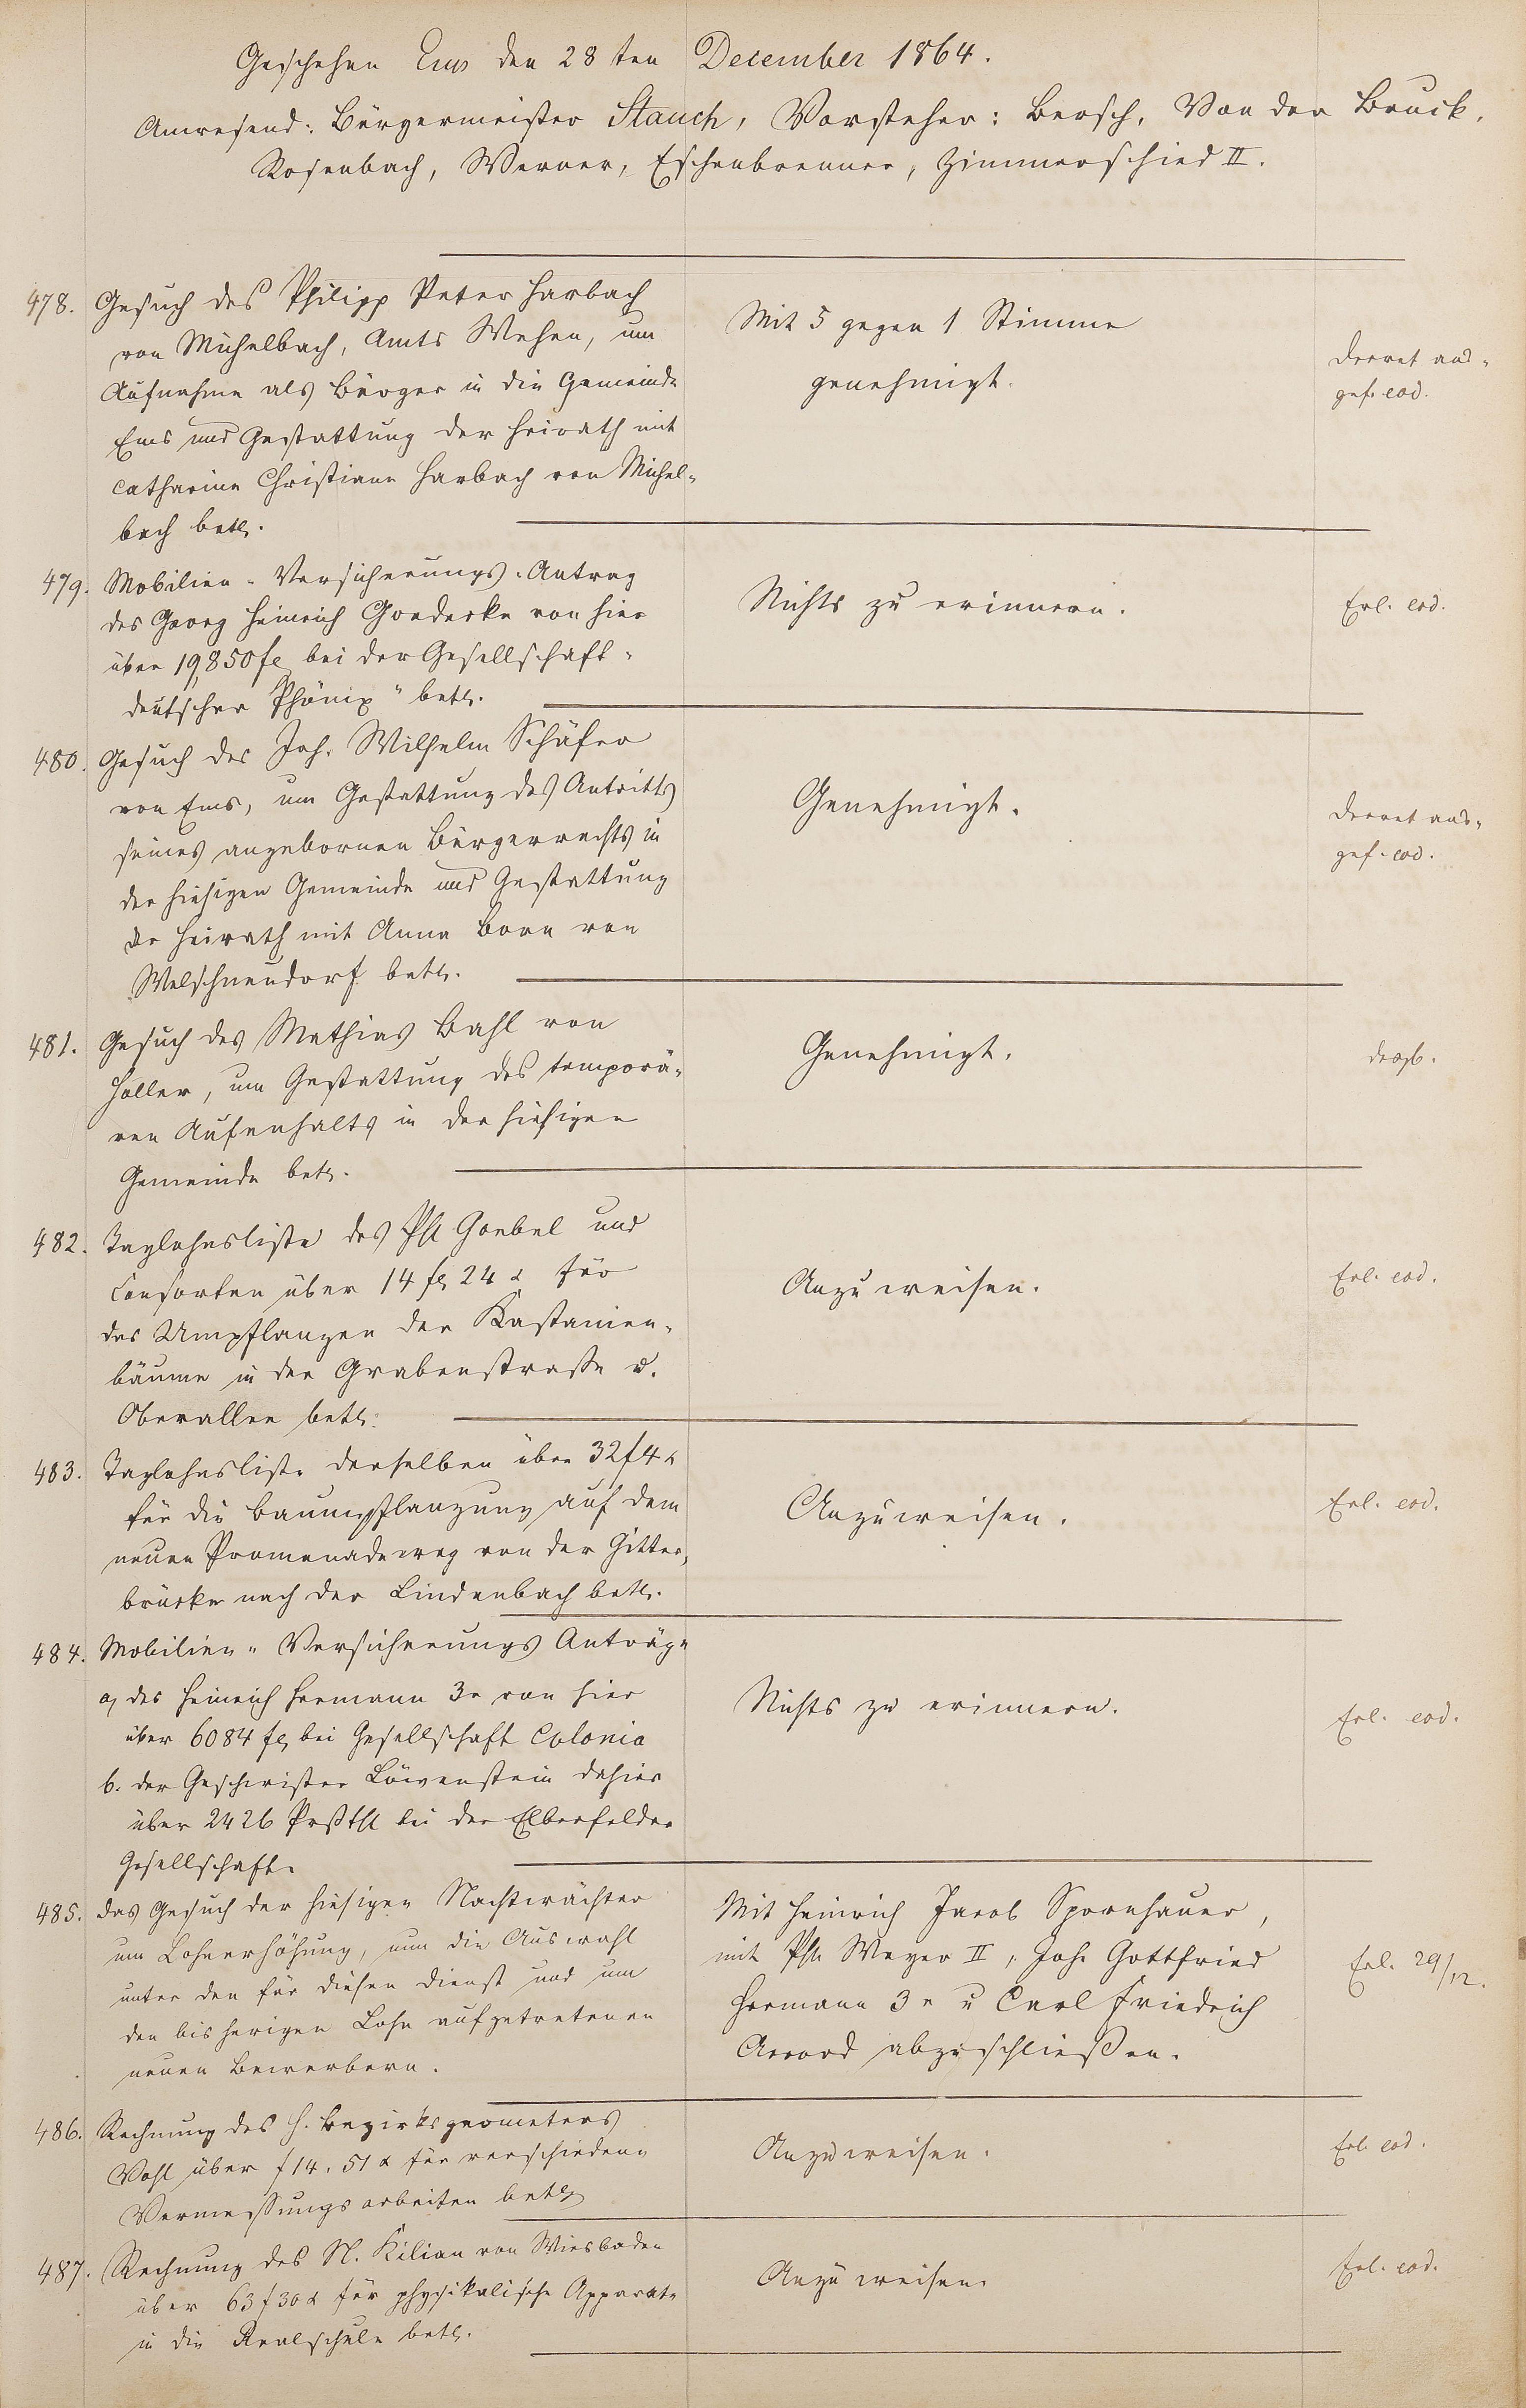 Geschehen Ems den 28ten December 1864.
Anwesend: Bürgermeister Stauch, Vorsteher: Bersch, Von der Bruck,
Rosenbach, Werner, Eschenbrenner, Zimmerschied II.
478. Gesuch des Philipp Peter Harbach
von Michelbach, Amts Wehen, um
Aufnahme als Bürger in die Gemeinde
Ems und Gestattung der Heirath mit
Catharine Christiane Harbach von Michel-
bach betr.
Mit 5 gegen 1 Stimme
genehmigt.
Decret aus-
gef. eod.
479. Mobilien-Versicherungs-Antrag
des Georg Heinrich Goedecke von hier
über 19,850 fl bei der Gesellschaft
„deutscher Phönix" betr.
Nichts zu erinnern.
Erl. eod.
480. Gesuch des Joh. Wilhelm Schäfer
von Ems, um Gestattung des Antritts
seines angebornen Bürgerrechts in
der hiesigen Gemeinde und Gestattung
der Heirath mit Anna Born von
Welschneudorf betr.
Genehmigt.
Decret aus-
gef. eod.
481. Gesuch des Mathias Bahl von
Holler, um Gestattung des temporä-
ren Aufenhalts in der hiesigen
Gemeinde betr.
Genehmigt.
desgl.
482. Taglohnsliste des Phl Goebel und
Consorten über 14 fl 24 x für
das Umpflanzen der Kastanien-
bäume in der Grabenstraße u.
Oberallee betr.
Anzuweisen.
Erl. eod.
483. Taglohnsliste derselben über 32 f 4 x
für die Baumpflanzung auf dem
neuen Promenadeweg von der Gitter-
brücke nach der Lindenbach betr.
Anzuweisen.
Erl. eod.
484. Mobilien-Versicherungs Anträge
a, des Heinrich Hermann 3r von hier
über 6084 fl, bei Gesellschaft Colonia
b. der Geschwister Löwenstein dahier
über 2426 Prßthl bei der Elberfelder
Gesellschaft.
Nichts zu erinnern.
Erl. eod.
485. Das Gesuch der hiesigen Nachtwächter
um Lohnerhöhung, nun die Auswahl
unter den für diesen Dienst und um
den bisherigen Lohn aufgetretenen
neuen Bewerbern.
Mit Heinrich Jacob Spornhauer,
mit Phil. Meyer II, Joh. Gottfried
Hermann 3r u Carl Friedrich
Accord abzuschließen.
Erl. 29/12.
486. Rechnung des H. Bezirksgeometers
Vohl über f 14. 51 x für verschiedene
Vermessungsarbeiten betr.
Anzuweisen.
Erl. eod.
487. Rechnung des N. Kilian von Wiesbaden
über 63 f 30 x für physikalische Apparate
in die Realschule betr.
Anzuweisen.
Erl. eod.